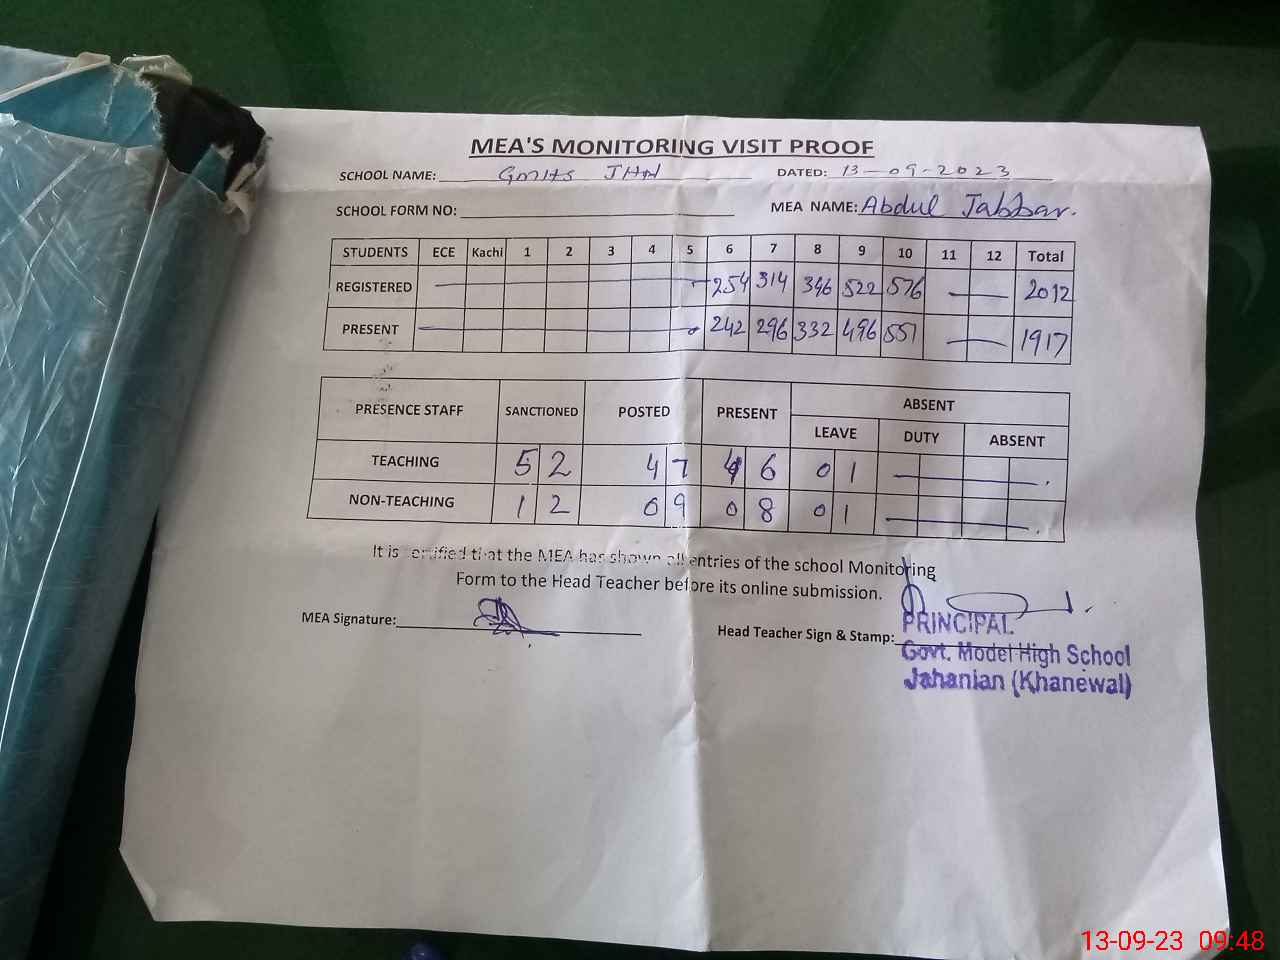 MEA'S MONITORING VISIT PROOF
SCHOOL NAME: GMHS JHN DATED: 13-09-2023
SCHOOL FORM NO: MEA NAME: Abdul Jabbar.
STUDENTS ECE Kachi 1 2 3 4 5 6 7 8 9 10 11 12 Total
REGISTERED 254 314 346 522 576 2012
PRESENT 242 296 332 496 551 1917
PRESENCE STAFF SANCTIONED POSTED PRESENT ABSENT
LEAVE DUTY ABSENT
TEACHING 52 47 46 01
NON-TEACHING 12 09 08 01
It is certified that the MEA has shown all entries of the school Monitoring
Form to the Head Teacher before its online submission.
MEA Signature: Head Teacher Sign & Stamp:
PRINCIPAL
Govt. Model High School
Jahanian (Khanewal)
13-09-23 09:48